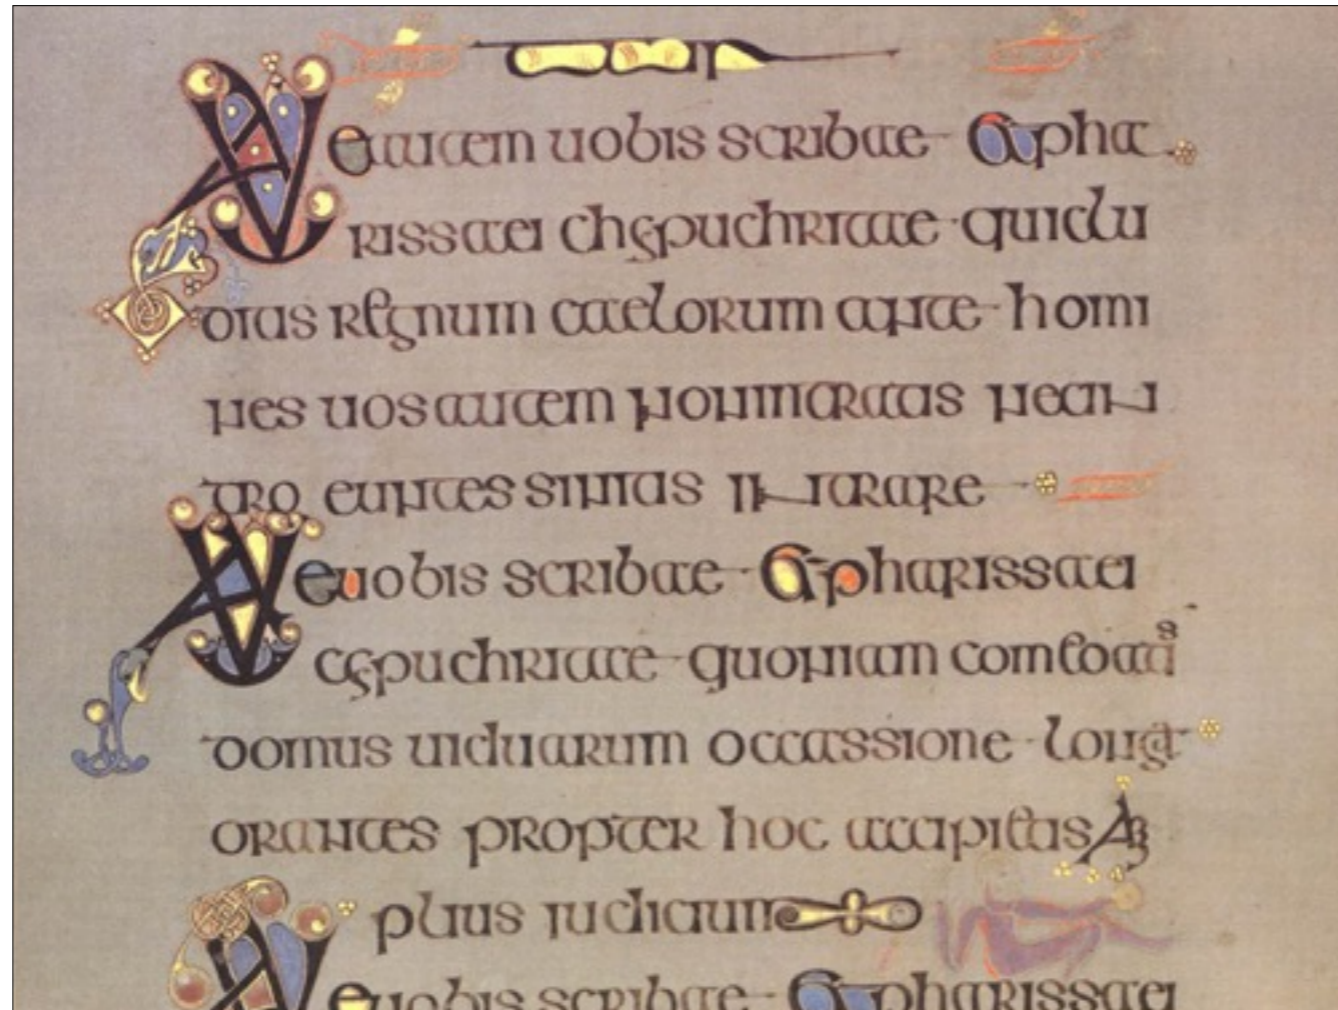 Vae autem uobis scribae et pha
rissaei chypuchritae quiclu
ditis regnum caelorum ante homi
nes uos autem non intratis nec in
tro euntes sinitis intrare
Vae uobis scribae et pharissaei
cypuchritae quoniam comeditis
domus uiduarum occassione longa
orantes propter hoc accipietis am
plius iudicium
Vae uobis scribae et pharissaei